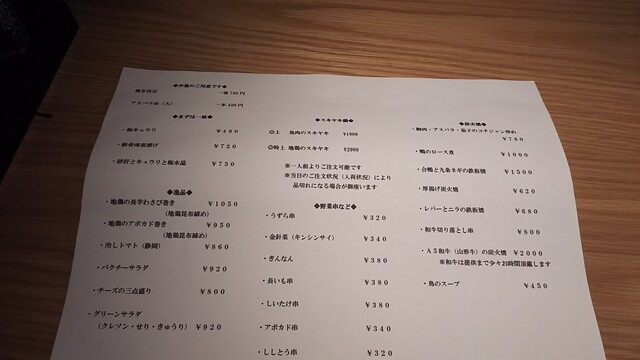 ◆少量のご用意です◆
一個700円
アスパラ串(大)　一本450円
◆まずは一品◆
・梅キュウリ　￥480
￥720
・砂肝とキュウリと梅水晶　￥750
◆逸品◆
・地鶏の長芋わさび巻き　￥1050
(地鶏昆布締め)
・地鶏のアボカド巻き　￥950
(地鶏昆布締め)
・冷しトマト(静岡)　￥860
・パクチーサラダ　￥920
・チーズの三点盛り　￥800
・グリーンサラダ
(クレソン・せり・きゅうり)　￥920
◆スキヤキ鍋◆
◎上　鳥肉のスキヤキ　￥1900
◎特上　地鶏のスキヤキ　￥2900
※一人前よりご注文可能です
※当日のご注文状況(入荷状況)により
品切れになる場合が御座います
◆野菜串など◆
・うずら串　￥320
・金針菜(キンシンサイ)　￥340
・ぎんなん　￥380
・長いも串　￥380
・しいたけ串　￥380
・アボカド串　￥340
・ししとう串　￥320
◆炭火焼◆
・胸肉・アスパラ・茄子のコチジャン炒め
￥780
・鴨のロース煮　￥1000
・合鴨と九条ネギの鉄板焼　￥1500
・厚揚げ炭火焼　￥620
・レバーとニラの鉄板焼　￥680
・和牛切り落とし串　￥800
・A5和牛(山形牛)の炭火焼　￥2000
※和牛は提供まで少々お時間頂戴します
・鳥のスープ　￥450